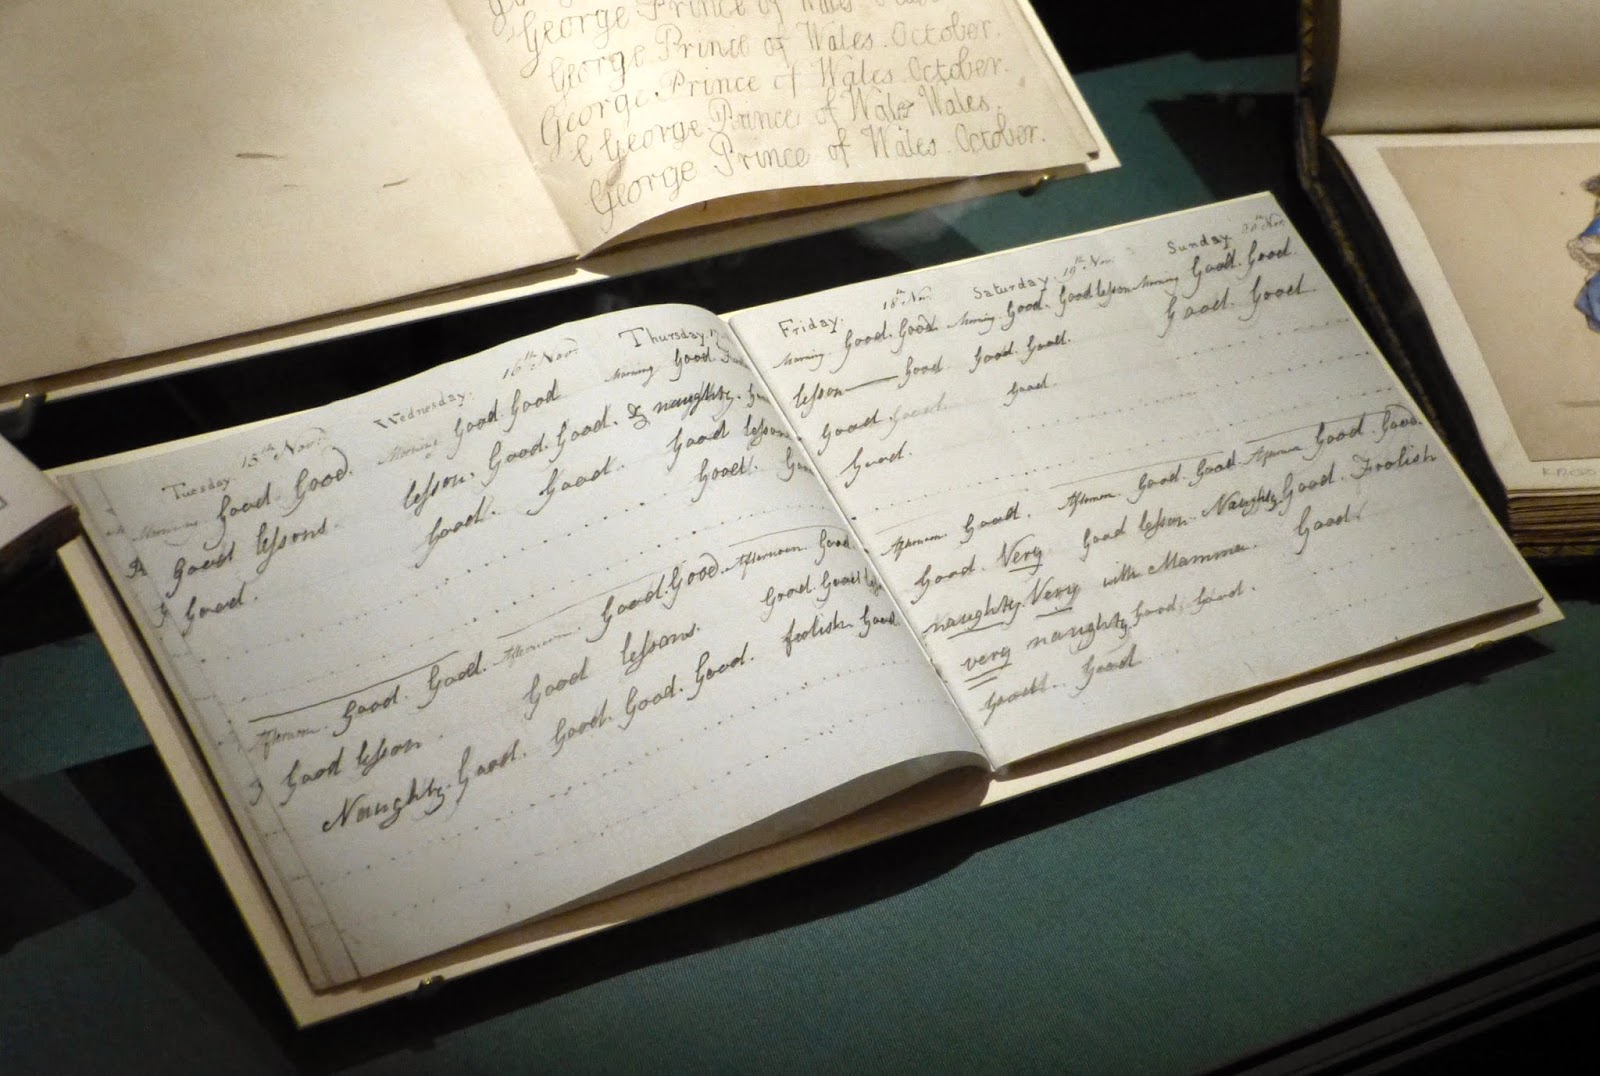 George Prince of Wales October
George Prince of Wales. October.
George. Prince of Wales October.
George Prince of Wales Wales.
George Prince of Wales. October.
Tuesday 15th Novr.
Morning Good. Good.
Good lessons.
Good.
Afternoon. Good. Good.
Good lesson.
Naughty. Good.
Wednesday. 16th Novr.
Morning Good Good
lesson. Good. Good. &
Good. Good.
Afternoon. Good. Good.
Good lessons.
Good. Good. Good.
Thursday.
Morning Good.
naughty.
Good lesson.
Good.
Afternoon Good.
Good. Good
foolish Good
Friday. 18th Nov.
Morning. Good. Good.
lesson — Good
Good. Good
Good.
Afternoon. Good.
Good. Very
naughty. Very
very naughty
Good. Good
Saturday. 19th Nov.
Morning. Good. Good lesson
Good. Good.
Good.
Afternoon. Good. Good.
Good lesson. Naughty
with Mamma.
Good. Good.
Sunday. 20th Nov.
Morning Good. Good.
Good. Good.
Afternoon Good. Good.
Good. Foolish
Good.